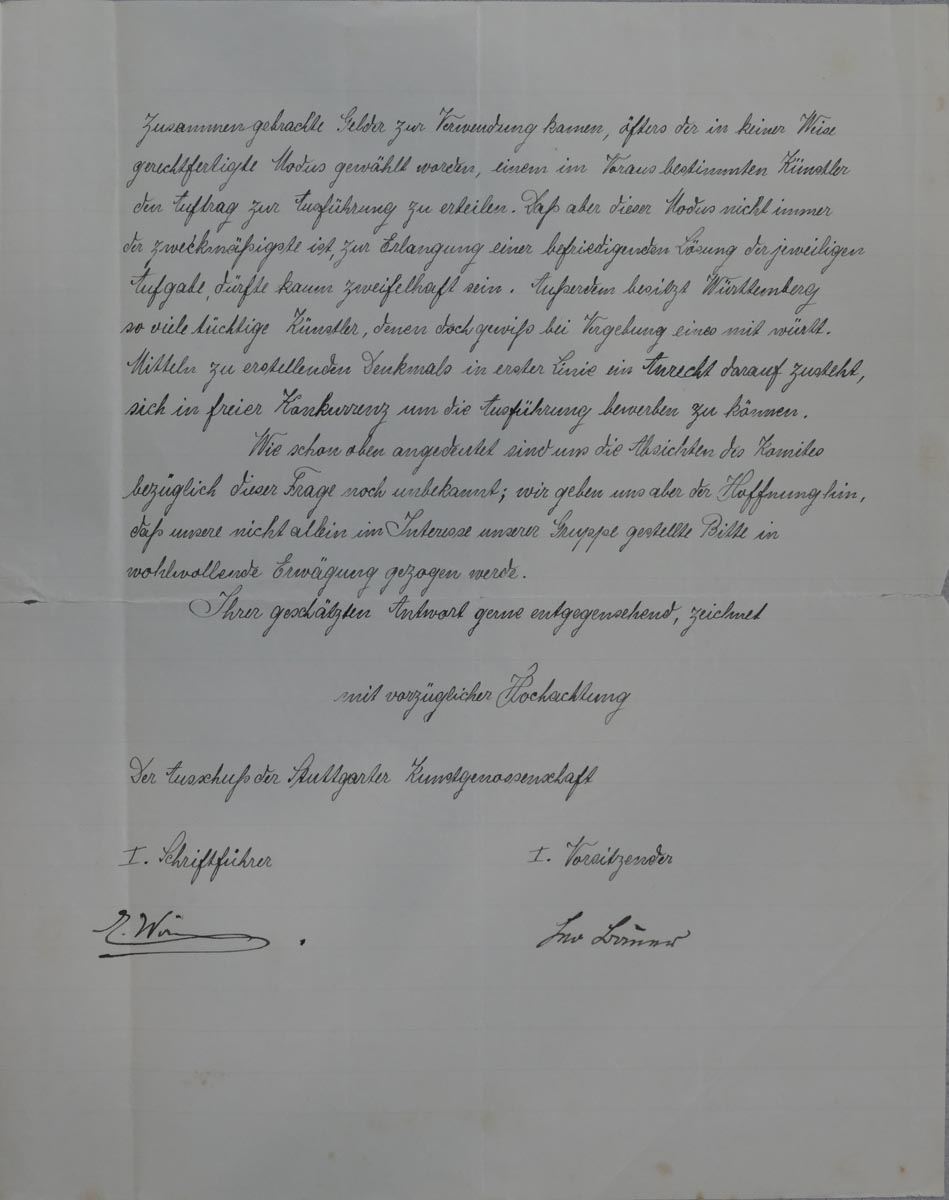 Zusammengebrachte Gelder zur Verwendung kamen, öfters der in keiner Weise
gerechtfertigte Modus gewählt worden, einem im Voraus bestimmten Künstler
den Auftrag zur Ausführung zu erteilen. Daß aber dieser Modus nicht immer
der zweckmäßigste ist, zur Erlangung einer befriedigenden Lösung der jeweiligen
Aufgabe, dürfte kaum zweifelhaft sein. Außerdem besitzt Württemberg
so viele tüchtige Künstler, denen doch gewiß bei Vergebung eines mit württ.
Mitteln zu erstellenden Denkmals in erster Linie ein Anrecht darauf zusteht,
sich in freier Konkurrenz um die Ausführung bewerben zu können.
Wie schon oben angedeutet sind uns die Absichten des Komites
bezüglich dieser Frage noch unbekannt; wir geben uns aber der Hoffnung hin,
daß unsere nicht allein im Interesse unserer Gruppe gestellte Bitte in
wohlwollende Erwägung gezogen werde.
Ihrer geschätzten Antwort gerne entgegensehend, zeichnet
mit vorzüglicher Hochachtung
Der Ausschuß der Stuttgarter Kunstgenossenschaft
I. Schriftführer I. Vorsitzender